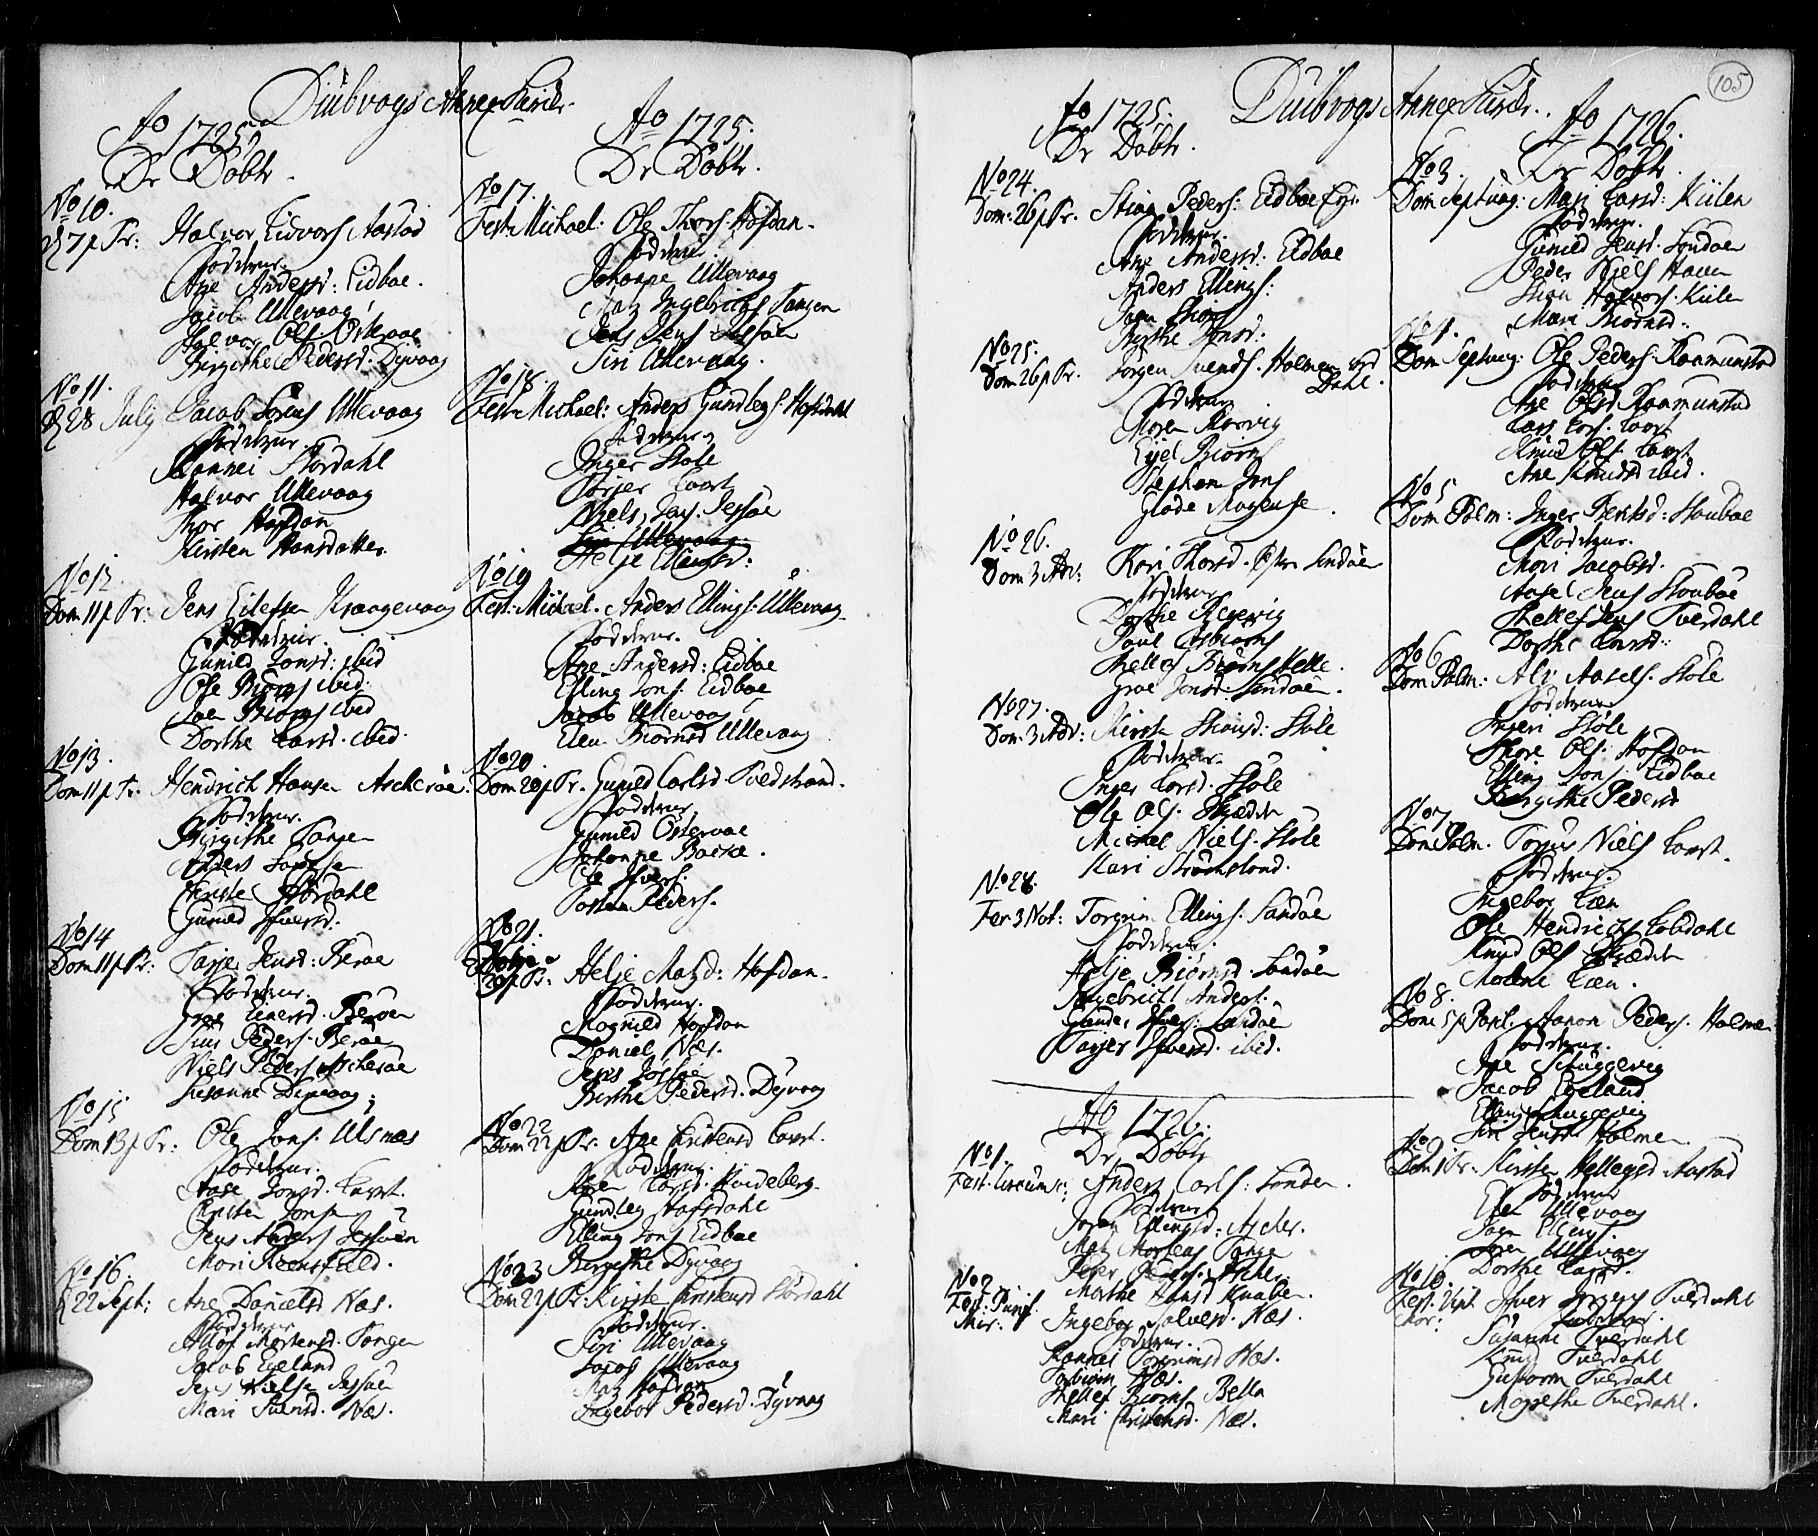 Diübvogs Annex Kirck.
Ao 1725.
De Döbte.
No 10.
7 p Tr: Halvor Eivors Aastad
Fadderne.
Ane Andersd: Eidboe.
Jacob Ullevaag
Halvor Ols Osteraae
Birgithe Pedersd. Dyvaag
No 11.
28 July Jacob Sörens Ullevaag
Fadderne.
Hanne Stordahl
Halvor Ullevaag
Thor Hofdan
Kirsten Hansdatter.
No 12.
Dom 11 p Tr: Jens Eilefsen Kraagevaag
Fadderne.
Gunild Jonsd: ibid
Ole Biörns ibid.
Joen Biörns ibid
Dorthe Larsd. ibid.
No 13.
Dom 11 p Tr. Hendrich Hansen Ascheröe.
Fadderne.
Birgithe Tangen
Anders
Christen Stordahl
Gunild Ifversd.
No 14
Dom 11 p Tr: Tarje Jensd: Beröe
Fadderne.
Groe Einersd. Beröen
Siur Peders. Beröe
Niels Peders Ascheröe
Susanne Dyevaag
No 15
Dom 13 p Tr: Ole Jons. Ulsnæs
Fadderne.
Aase Jonsd. Laget.
Christen Jonsen
Jens Anders Jessöen
Mari Reensfield.
No 16.
22 Sept: Ane Danielsd Næs.
Fadderne
Mortensd. Tangen
Jacob Egeland
Jens Nielsen Jessöe
Mari Svensd. Næs.
Ao 1725.
De Döbte.
No 17.
Fest: Michael: Ole Thors. Hofdan.
Fadderne.
Johanne Ullevaag
Matz Ingebrigts Tangen
Jens Jens Jessöen
Siri Ullevaag.
No 18.
Fest: Michael: Anders Gundlegs. Hofdahl
Fadderne
Inger Stöle
Törjer Laget
Niels Jans. Jessöe
Siri Ullevaag.
Helje Ellingsd:
No 19
Fest: Michael. Anders Ellings: Ullevaag.
Fadderne.
Ane Andersd: Eidboe
Elling Jons: Eidboe
Jacob Ullevaag
Elen Biörnsd Ullevaag
No 20
Dom 20 p Tr. Gunild Carlsd Tvedstrand.
Fadderne
Gunild Osteraae
Johanne Backe.
Ole Ifvers:
Tosten Peders.
No 21.
20 p Tr: Helje Matzd: Hofdan.
Fadderne.
Magnild Hofdan
Daniel Næs.
Jens Jossöe
Birthe Pedersd. Dyvaag
No 22
Dom 22 p Tr. Ane Christensd Laget.
Fadderne.
Maren Larsd. Qvideberg.
Gundleg Hofsdahl
Elling Jons Eidboe
Birgithe Dyvaag
No 23
Dom 22 p Tr. Kirsten Christensd Stordahl
Fadderne.
Siri Ullevaag
Jacob Ullevaag
Matz Hofdan
Ingebor Pedersd. Dyvaag
105
Düibvogs Annex Kirck.
Ao 1725.
De Döbte.
No 24.
Dom: 26 p Tr. Stian Peders: Eidboe
Fadderne.
Ane Andersd: Eidboe
Anders Ellings:
Joen Stians
Birthe Jonsd:
No 25:
Dom. 26 p Tr. Jörgen Svends. Holmen ved
Dahl.
Fadderne
Maren
Eyel Biörns
Stephan Jons
Glöde Mogense.
No 26.
Dom. 3 Adv: Kari Thorsd. Öster Sandöe
Fadderne
Dorthe Hegevig
Poul Esbiörns
Hellef Biörns Helle.
Groe Jonsd. Sandöe.
No 27.
Dom. 3 Adv: Kirsten Stiansd: Stöle
Fadderne.
Inger Larsd. Stöle
Ole Ols.
Michel Niels. Stöle
Kari Strömsland.
No 28.
Fer. 3 Nat: Torgrim Ellings. Sandöe
Fadderne.
Helje Biörnsd. Sandöe
Ingebricht Anders.
Gunder Ifvers. Sandöe
Tarjer Ifversd. ibid.
Ao 1726.
De Döbte
No 1.
Fest. Circumc: Anders Carls: Sonden.
Fadderne
Joran Ellingsd. Ascher.
Matz Mortens Tangen
Peter Peders. Ascher.
Marthe Hansd Knaben.
No 2
Fest. Purif. Mar. Ingebor Salvesd. Næs.
Fadderne.
Hanne Torgrimsd Næs.
Torbiörn Næs.
Hellef Biörns Bella
Mari Christensd. Næs.
Ao 1726.
De Döbte.
No 3.
Dom Septuag: Mari Larsd: Kiilen
Fadderne.
Gunild Jensd. Sandöe
Peder Niels Haven
Stian Halvors. Kiilen
Mari Biörnsd.
No 4.
Dom Septuag: Ole Peders. Raamunstad
Fadderne
Ane Olsd Raamunstad
Lars Lars. Laget
Knud Ols. Laget
Ane Knudsd ibid.
No 5
Dom Palm: Inger Bentsd: Stauböe
Fadderne.
Mari Jacobsd.
Axel Jens Stauböe
Hellef Jens Tverdahl
Dorthe Larsd:
No 6
Dom Palm: Alv Axels. Stöle
Fadderne
Ingeri Stöle
Thore Ols. Hofdan
Elling Jons. Eidboe
Birgithe Pedersd
No 7
Dom Palm. Torjus Niels Laget.
Fadderne
Ingebor Læn
Ole Hendrichs Labdahl
Knud Ols
Madlene Læn.
No 8.
Dom: 5 p Pasch. Aanon Peders. Holmen
Fadderne.
Ane Schuggevig
Jacob Egeland
Elling Schuggevig
Siri Jensd. Holmen.
No 9
Dom 1 p Tr: Kirsten Hellegsd Aastad
Fadderne
Elen Ullevaag
Joen Ellings.
Sören Ullevaag
Dorthe Larsd.
No 10.
Fest. Visit. Mar: Ifver Jörgens Tverdahl
Fadderne.
Susanne Tverdahl
Knud Tverdahl
Guttorm Tverdahl
Magrethe Tverdahl.